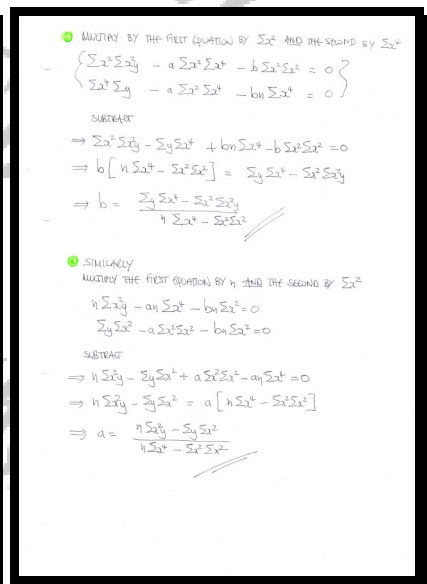 MULTIPLY BY THE FIRST EQUATION BY Σx² AND THE SECOND BY Σx⁴
Σx²Σx²y - aΣx²Σx⁴ - bΣx²Σx² = 0
Σx⁴Σy - aΣx²Σx⁴ - bnΣx⁴ = 0
SUBTRACT
⇒ Σx²Σx²y - ΣyΣx⁴ + bnΣx⁴ - bΣx²Σx² = 0
⇒ b[nΣx⁴ - Σx²Σx²] = ΣyΣx⁴ - Σx²Σx²y
⇒ b = (ΣyΣx⁴ - Σx²Σx²y) / (nΣx⁴ - Σx²Σx²)
SIMILARLY
MULTIPLY THE FIRST EQUATION BY n AND THE SECOND BY Σx²
nΣx²y - anΣx⁴ - bnΣx² = 0
ΣyΣx² - aΣx²Σx² - bnΣx² = 0
SUBTRACT
⇒ nΣx²y - ΣyΣx² + aΣx²Σx² - anΣx⁴ = 0
⇒ nΣx²y - ΣyΣx² = a[nΣx⁴ - Σx²Σx²]
⇒ a = (nΣx²y - ΣyΣx²) / (nΣx⁴ - Σx²Σx²)